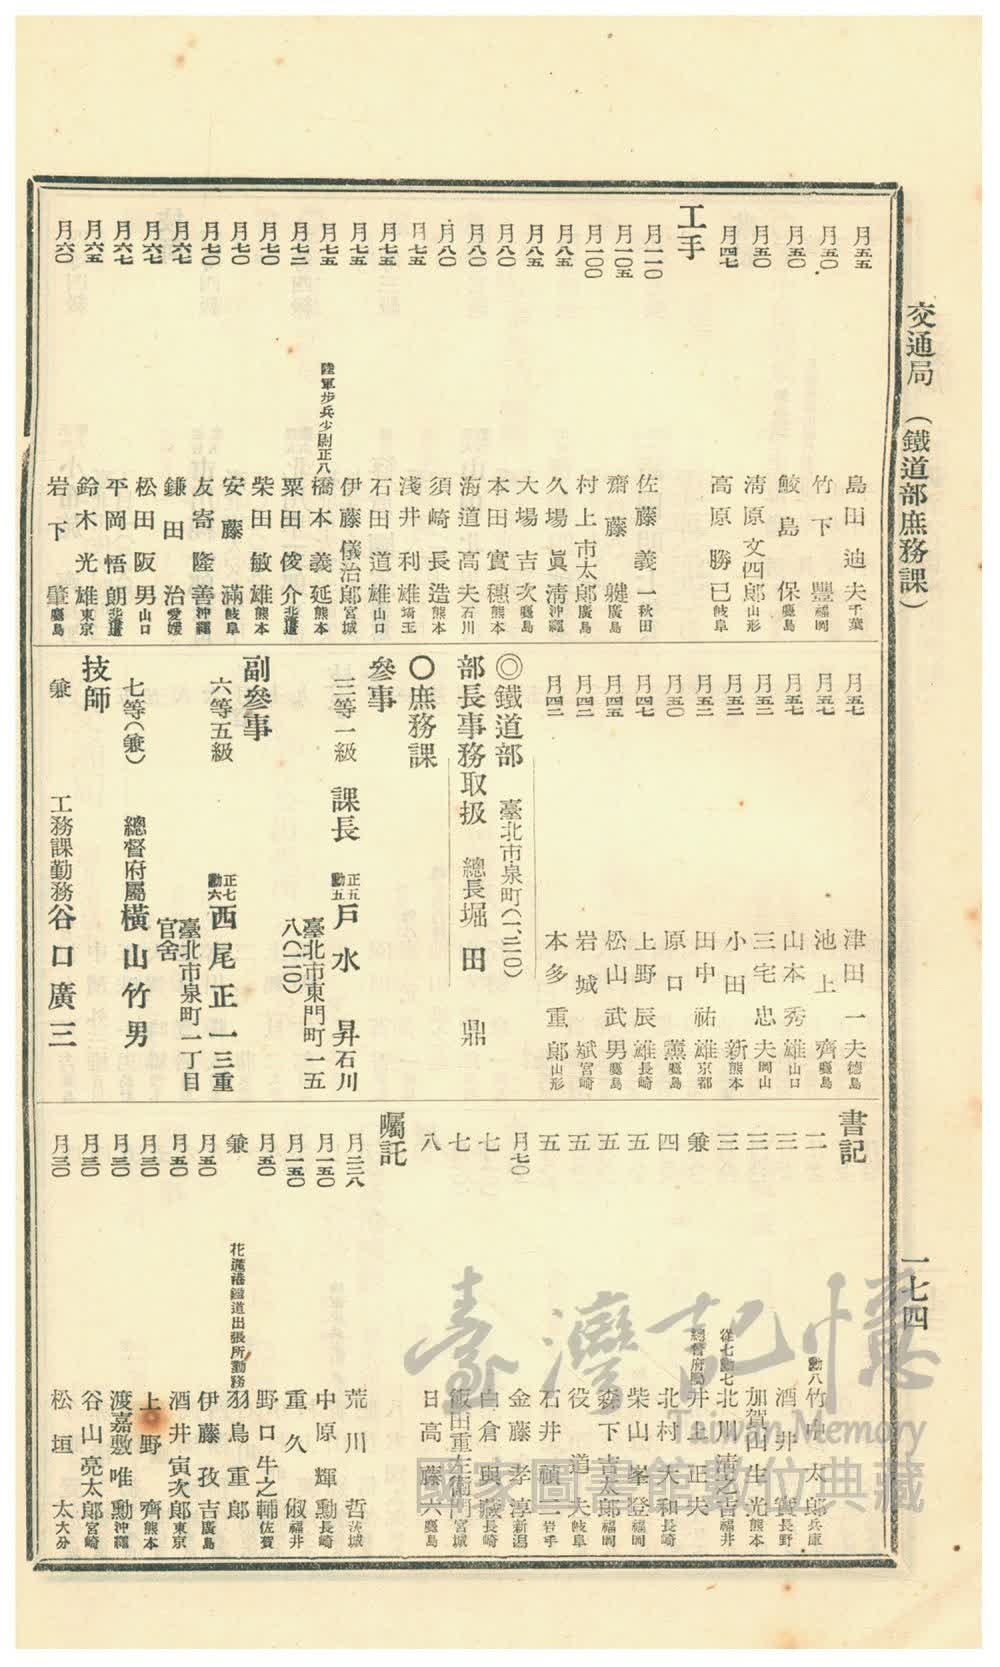 交通局 (鐵道部庶務課)
一七四
月五五 島田迪夫 千葉
月五〇 竹下豐 福岡
月五〇 鮫島保 鹿島
月五〇 淸原文四郎 山形
月四七 高原勝巳 岐阜
工手
月一一〇 佐藤義一 秋田
月一〇五 齋藤 廣島
月一〇〇 村上市太郎 廣島
月八五 久場眞淸 沖繩
月八五 大場吉次 鹿島
月八〇 本田實穗 熊本
月八〇 海道高夫 石川
月八〇 須崎長造 熊本
月七五 淺井利雄 埼玉
月七五 石田道雄 山口
月七五 伊藤儀治郎 宮城
月七五 陸軍步兵少尉正八 橋本義延 熊本
月七二 粟田俊介 北海道
月七〇 柴田敏雄 熊本
月七〇 安藤滿 岐阜
月七〇 友寄隆善 沖繩
月六七 鎌田治 愛媛
月六七 松田阪男 山口
月六七 平岡悟朗 北海道
月六五 鈴木光雄 東京
月六〇 岩下肇 鹿島
月五七 津田一夫 德島
月五七 池上齊 鹿島
月五七 山本秀雄 山口
月五二 三宅忠夫 岡山
月五二 小田新 熊本
月五二 田中祐雄 京都
月五〇 原口薰 鹿島
月四七 上野辰雄 長崎
月四五 松山武男 鹿島
月四二 岩城斌 宮崎
月四二 本多重郎 山形
◎鐵道部 臺北市泉町(二、三二〇)
部長事務取扱 總長 堀田鼎
〇庶務課
參事
三等一級 課長 正五勳五 戶水昇 石川
臺北市東門町一五八(二〇)
副參事
六等五級 正七勳六 西尾正一 三重
臺北市泉町一丁目官舍
七等(兼) 總督府屬 橫山竹男
技師
兼 工務課勤務 谷口廣三
書記
二 勳八 竹 太郎 兵庫
三 酒井實 長野
三 加賀山生光 熊本
三 從七勳七 北川淸之吉 福井
兼 總督府屬 井上正夫
四 北村大和 長崎
五 柴山峯登 福岡
五 森下吉太郎 福岡
五 役道夫 岐阜
五 石井禎二 岩手
月七〇 金藤孝淳 新潟
七 白倉與藏 長崎
七 飯田重左衞門 宮城
八 日高藤六 鹿島
囑託
月二二八 荒川哲 茨城
月一五〇 中原輝勳 長崎
月一五〇 重久俶 福井
月五〇 野口牛之輔 佐賀
兼 花蓮港鐵道出張所勤務 羽鳥重郎
月五〇 伊藤孜吉 廣島
月五〇 酒井寅次郎 東京
月三〇 上野齊 熊本
月三〇 渡嘉敷唯勳 沖繩
月三〇 谷山亮太郎 宮崎
月三〇 松垣太 大分
臺灣記憶
Taiwan Memory
國家圖書館數位典藏